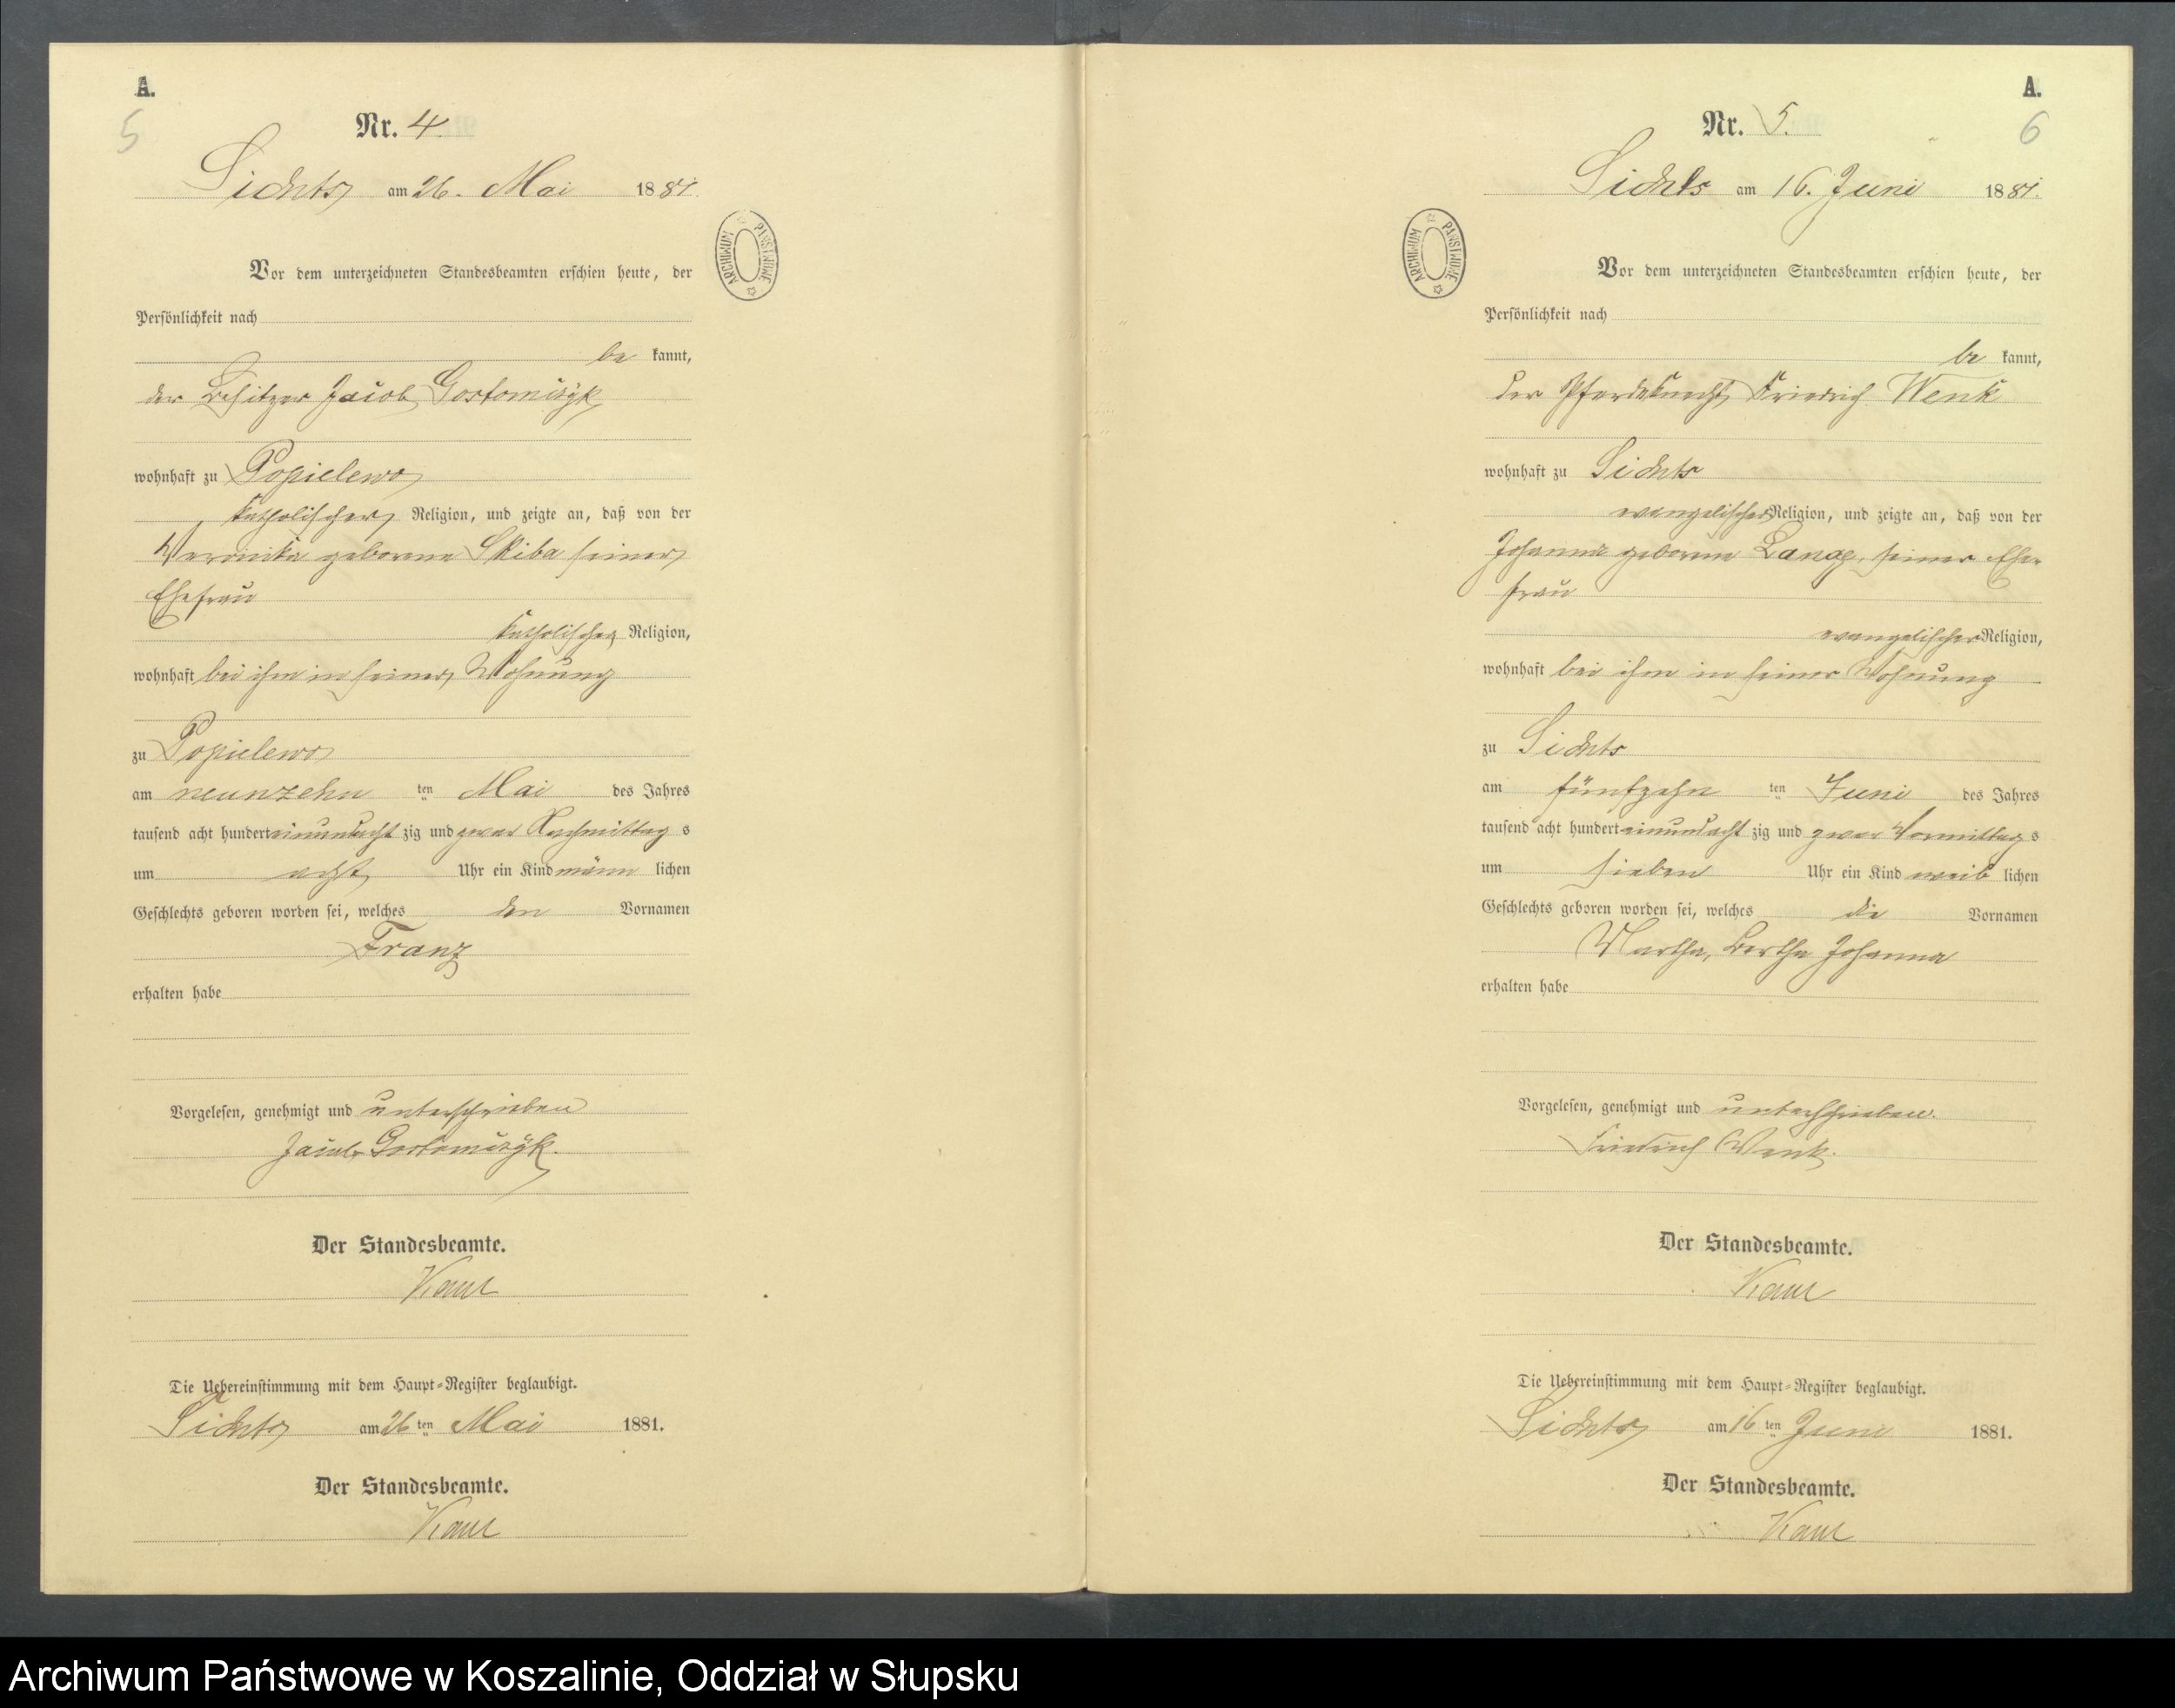 A.
5
Nr. 4.
Sichts am 26. Mai 1881.
Vor dem unterzeichneten Standesbeamten erschien heute, der
Persönlichkeit nach
be kannt,
der Besitzer Jacob Gostomczyk
wohnhaft zu Popielewo
katholischer Religion, und zeigte an, daß von der
Weronika geborene Skiba seiner
Ehefrau
katholischer Religion,
wohnhaft bei ihm in seiner Wohnung
zu Popielewo
am neunzehn ten Mai des Jahres
tausend acht hundert einundacht zig und zwar Nachmittag s
um acht Uhr ein Kind männ lichen
Geschlechts geboren worden sei, welches den Vornamen
Franz
erhalten habe
Vorgelesen, genehmigt und unterschrieben
Jacob Gostomczyk.
Der Standesbeamte.
Die Uebereinstimmung mit dem Haupt-Register beglaubigt.
Sichts am 26 ten Mai 1881.
Der Standesbeamte.
ARCHIWUM PAŃSTWOWE
A.
6
Nr. 5.
Sichts am 16. Juni 1881.
Vor dem unterzeichneten Standesbeamten erschien heute, der
Persönlichkeit nach
be kannt,
der Pferdeknecht Friedrich Wenk
wohnhaft zu Sichts
evangelischer Religion, und zeigte an, daß von der
Johanna geborene Lange, seiner Ehe-
frau
evangelischer Religion,
wohnhaft bei ihm in seiner Wohnung
zu Sichts
am fünfzehn ten Juni des Jahres
tausend acht hundert einundacht zig und zwar Vormittag s
um sieben Uhr ein Kind weib lichen
Geschlechts geboren worden sei, welches die Vornamen
Martha, Bertha Johanna
erhalten habe
Vorgelesen, genehmigt und unterschrieben.
Friedrich Wenk.
Der Standesbeamte.
Die Uebereinstimmung mit dem Haupt-Register beglaubigt.
Sichts am 16 ten Juni 1881.
Der Standesbeamte.
ARCHIWUM PAŃSTWOWE
Archiwum Państwowe w Koszalinie, Oddział w Słupsku